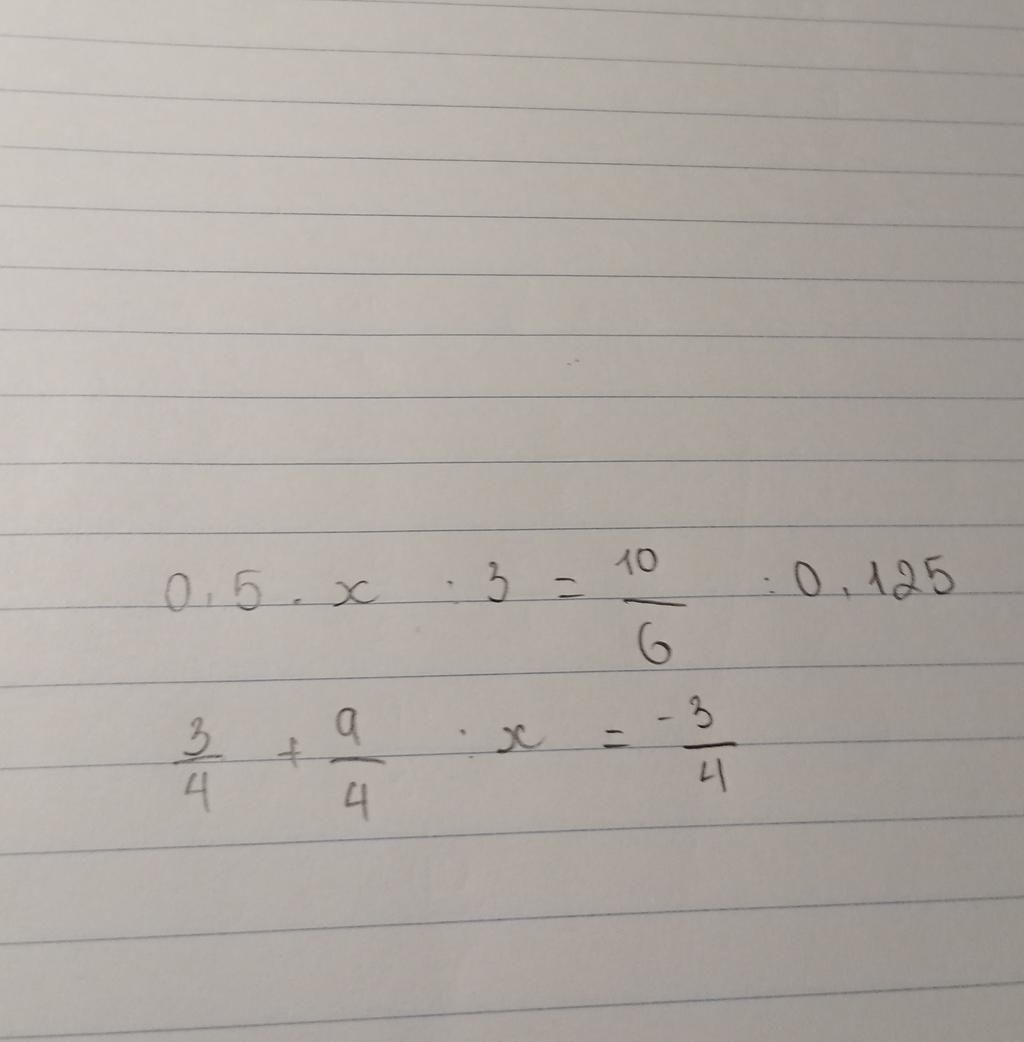 0.5 . x : 3 = 10/6 : 0.125
3/4 + 9/4 : x = -3/4